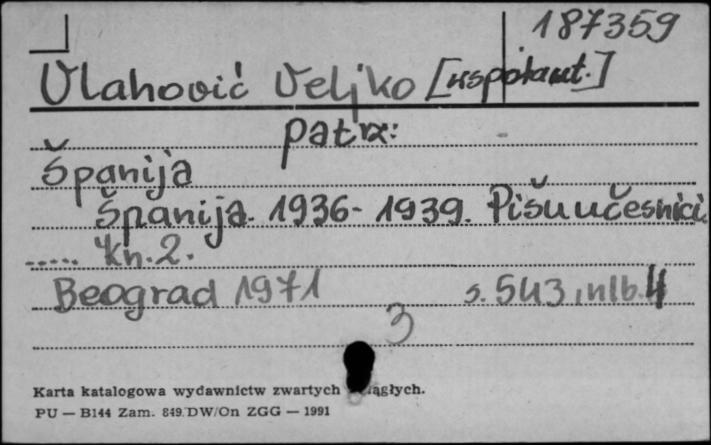 187359
Vlahović Veljko [współaut.]
patrz:
Španija
Španija. 1936-1939. Pišu učesnici.
..... Kn. 2.
Beograd 1971 s. 543, nlb. 4
3
Karta katalogowa wydawnictw zwartych ciągłych.
PU — B144 Zam. 849.DW/On ZGG — 1991